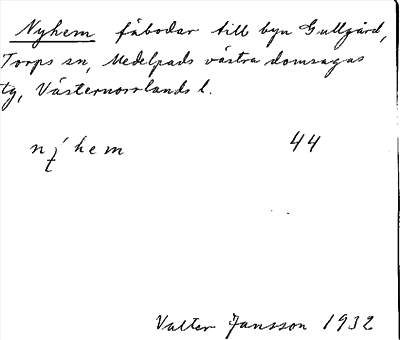 Nyhem fäbodar till byn Gullgård,
Torps sn, Medelpads västra domsagas
tg, Västernorrlands l.
nýhem 44
Valter Jansson 1932